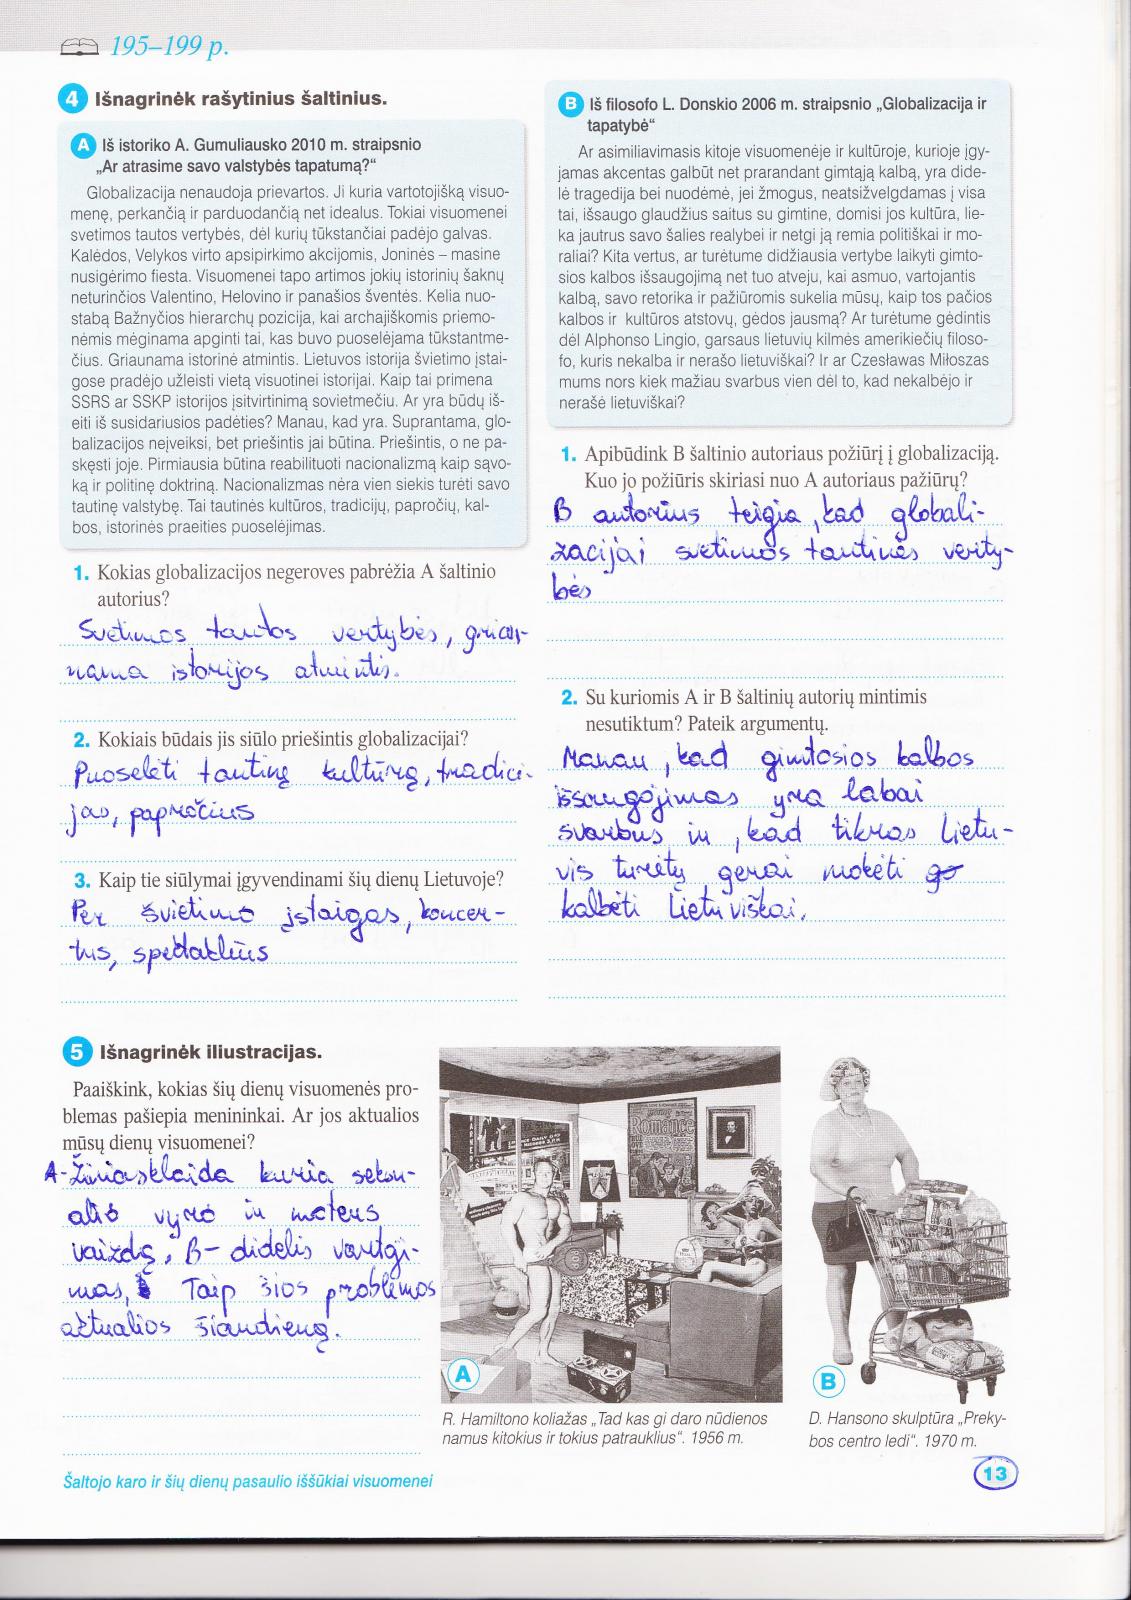 195–199 p.
4 Išnagrinėk rašytinius šaltinius.
A Iš istoriko A. Gumuliausko 2010 m. straipsnio
„Ar atrasime savo valstybės tapatumą?“
Globalizacija nenaudoja prievartos. Ji kuria vartotojišką visuo-
menę, perkančią ir parduodančią net idealus. Tokiai visuomenei
svetimos tautos vertybės, dėl kurių tūkstančiai padėjo galvas.
Kalėdos, Velykos virto apsipirkimo akcijomis, Joninės – masine
nusigėrimo fiesta. Visuomenei tapo artimos jokių istorinių šaknų
neturinčios Valentino, Helovino ir panašios šventės. Kelia nuo-
stabą Bažnyčios hierarchų pozicija, kai archajiškomis priemo-
nėmis mėginama apginti tai, kas buvo puoselėjama tūkstantme-
čius. Griaunama istorinė atmintis. Lietuvos istorija švietimo įstai-
gose pradėjo užleisti vietą visuotinei istorijai. Kaip tai primena
SSRS ar SSKP istorijos įsitvirtinimą sovietmečiu. Ar yra būdų iš-
eiti iš susidariusios padėties? Manau, kad yra. Suprantama, glo-
balizacijos neįveiksi, bet priešintis jai būtina. Priešintis, o ne pa-
skęsti joje. Pirmiausia būtina reabilituoti nacionalizmą kaip sąvo-
ką ir politinę doktriną. Nacionalizmas nėra vien siekis turėti savo
tautinę valstybę. Tai tautinės kultūros, tradicijų, papročių, kal-
bos, istorinės praeities puoselėjimas.
1. Kokias globalizacijos negeroves pabrėžia A šaltinio
autorius?
Svetimos tautos vertybės, griau-
nama istorijos atmintis.
2. Kokiais būdais jis siūlo priešintis globalizacijai?
Puoselėti tautinę kultūrą, tradici-
jas, papročius
3. Kaip tie siūlymai įgyvendinami šių dienų Lietuvoje?
Per švietimo įstaigas, koncer-
tus, spektaklius
B Iš filosofo L. Donskio 2006 m. straipsnio „Globalizacija ir
tapatybė“
Ar asimiliavimasis kitoje visuomenėje ir kultūroje, kurioje įgy-
jamas akcentas galbūt net prarandant gimtąją kalbą, yra dide-
lė tragedija bei nuodėmė, jei žmogus, neatsižvelgdamas į visa
tai, išsaugo glaudžius saitus su gimtine, domisi jos kultūra, lie-
ka jautrus savo šalies realybei ir netgi ją remia politiškai ir mo-
raliai? Kita vertus, ar turėtume didžiausia vertybe laikyti gimto-
sios kalbos išsaugojimą net tuo atveju, kai asmuo, vartojantis
kalbą, savo retorika ir pažiūromis sukelia mūsų, kaip tos pačios
kalbos ir kultūros atstovų, gėdos jausmą? Ar turėtume gėdintis
dėl Alphonso Lingio, garsaus lietuvių kilmės amerikiečių filoso-
fo, kuris nekalba ir nerašo lietuviškai? Ir ar Czesławas Miłoszas
mums nors kiek mažiau svarbus vien dėl to, kad nekalbėjo ir
nerašė lietuviškai?
1. Apibūdink B šaltinio autoriaus požiūrį į globalizaciją.
Kuo jo požiūris skiriasi nuo A autoriaus pažiūrų?
B autorius teigia, kad globali-
zacijai svetimos tautinės verty-
bės
2. Su kuriomis A ir B šaltinių autorių mintimis
nesutiktum? Pateik argumentų.
Manau, kad gimtosios kalbos
išsaugojimas yra labai
svarbus ir, kad tikras Lietu-
vis turėtų gerai mokėti
kalbėti Lietuviškai.
5 Išnagrinėk iliustracijas.
Paaiškink, kokias šių dienų visuomenės pro-
blemas pašiepia menininkai. Ar jos aktualios
mūsų dienų visuomenei?
A-Žiniasklaida kuria seksu-
alio vyro ir moters
vaizdą, B- didelis vartoji-
mas, Taip šios problemos
aktualios šiandieną.
Romance
A
R. Hamiltono koliažas „Tad kas gi daro nūdienos
namus kitokius ir tokius patrauklius“. 1956 m.
B
D. Hansono skulptūra „Preky-
bos centro ledi“. 1970 m.
Šaltojo karo ir šių dienų pasaulio iššūkiai visuomenei
13